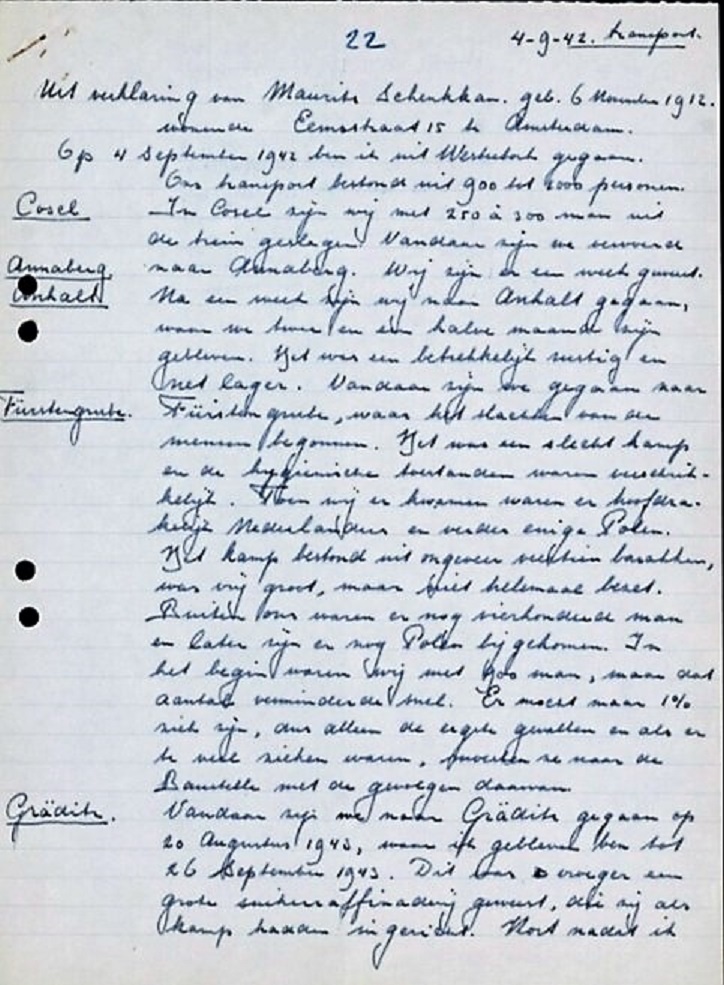 22
4-9-42. transport.
Uit verklaring van Maurits Schenkkan. geb. 6 November 1912.
wonende Eemsstraat 15 te Amsterdam.
Op 4 September 1942 ben ik uit Westerbork gegaan.
Ons transport bestond uit 900 tot 1000 personen.
Cosel In Cosel zijn wij met 250 à 300 man uit
de trein geslagen. Vandaar zijn we vervoerd
Annaberg, naar Annaberg. Wij zijn er een week geweest.
Anhalt Na een week zijn wij naar Anhalt gegaan,
waar we twee en een halve maand zijn
gebleven. Het was een betrekkelijk rustig en
net lager. Vandaar zijn we gegaan naar
Fürstengrube. Fürstengrube, waar het slachten van de
mensen begonnen. Het was een slecht kamp
en de hygienische toestanden waren verschrik-
kelijk. Toen wij er kwamen waren er hoofdza-
kelijk Nederlanders en verder enige Polen.
Het kamp bestond uit ongeveer veertien barakken,
was vrij groot, maar niet helemaal bezet.
Buiten ons waren er nog vierhonderd man
en later zijn er nog Polen bijgekomen. In
het begin waren wij met 900 man, maar dat
aantal verminderde snel. Er mocht maar 1%
ziek zijn, dus alleen de ergste gevallen en als er
te veel zieken waren, moesten ze naar de
Baustelle met de gevolgen daarvan.
Gräditz. Vandaar zijn we naar Gräditz gegaan op
20 Augustus 1943, waar ik gebleven ben tot
26 September 1943. Dit was vroeger een
grote suikerraffinaderij geweest, die zij als
kamp hadden ingericht. Kort nadat ik